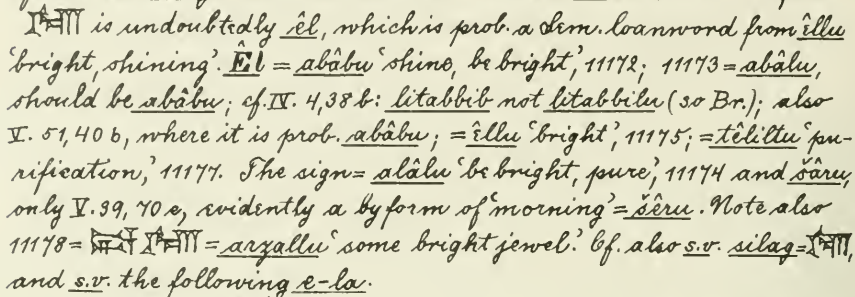 is undoubtedly êl, which is prob. a Sem. loanword from îllu
'bright, shining'. Êl = abâbu 'shine, be bright,' 11172; 11173 = abâlu,
should be abâbu; cf. IV. 4,38b: litabbib not litabbilu (so Br.); also
V. 51,40 b, where it is prob. abâbu; = îllu 'bright', 11175; = têliltu 'pu-
rification,' 11177. The sign = alâlu 'be bright, pure', 11174 and šâru,
only V. 39, 70 e, evidently a byform of 'morning' = šêru. Note also
11178 = = arzallu 'some bright jewel.' Cf. also s.v. silag = ,
and s.v. the following e-la.